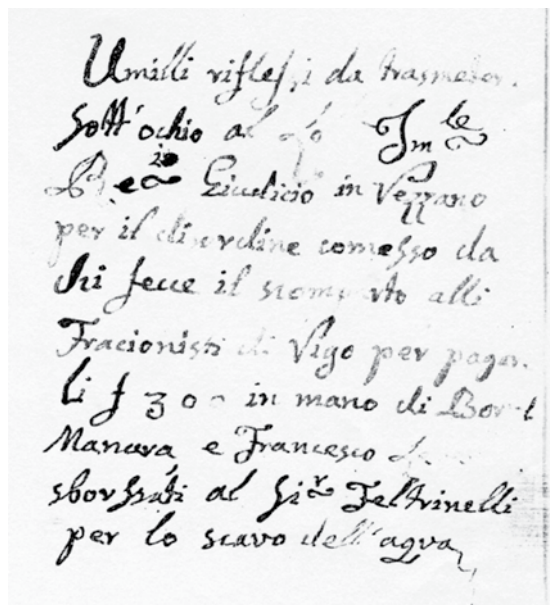 Umilli riflessi da trasmeter
sott'ochio al Im le
Giudicio in Vezzano
per il disordine comesso da
chi fece il scomparto alli
Fracionisti di Vigo per pagar
li f 300 in mano di
Manara e Francesco
sborssati al Sir Feltrinelli
per lo scavo dell'aqua